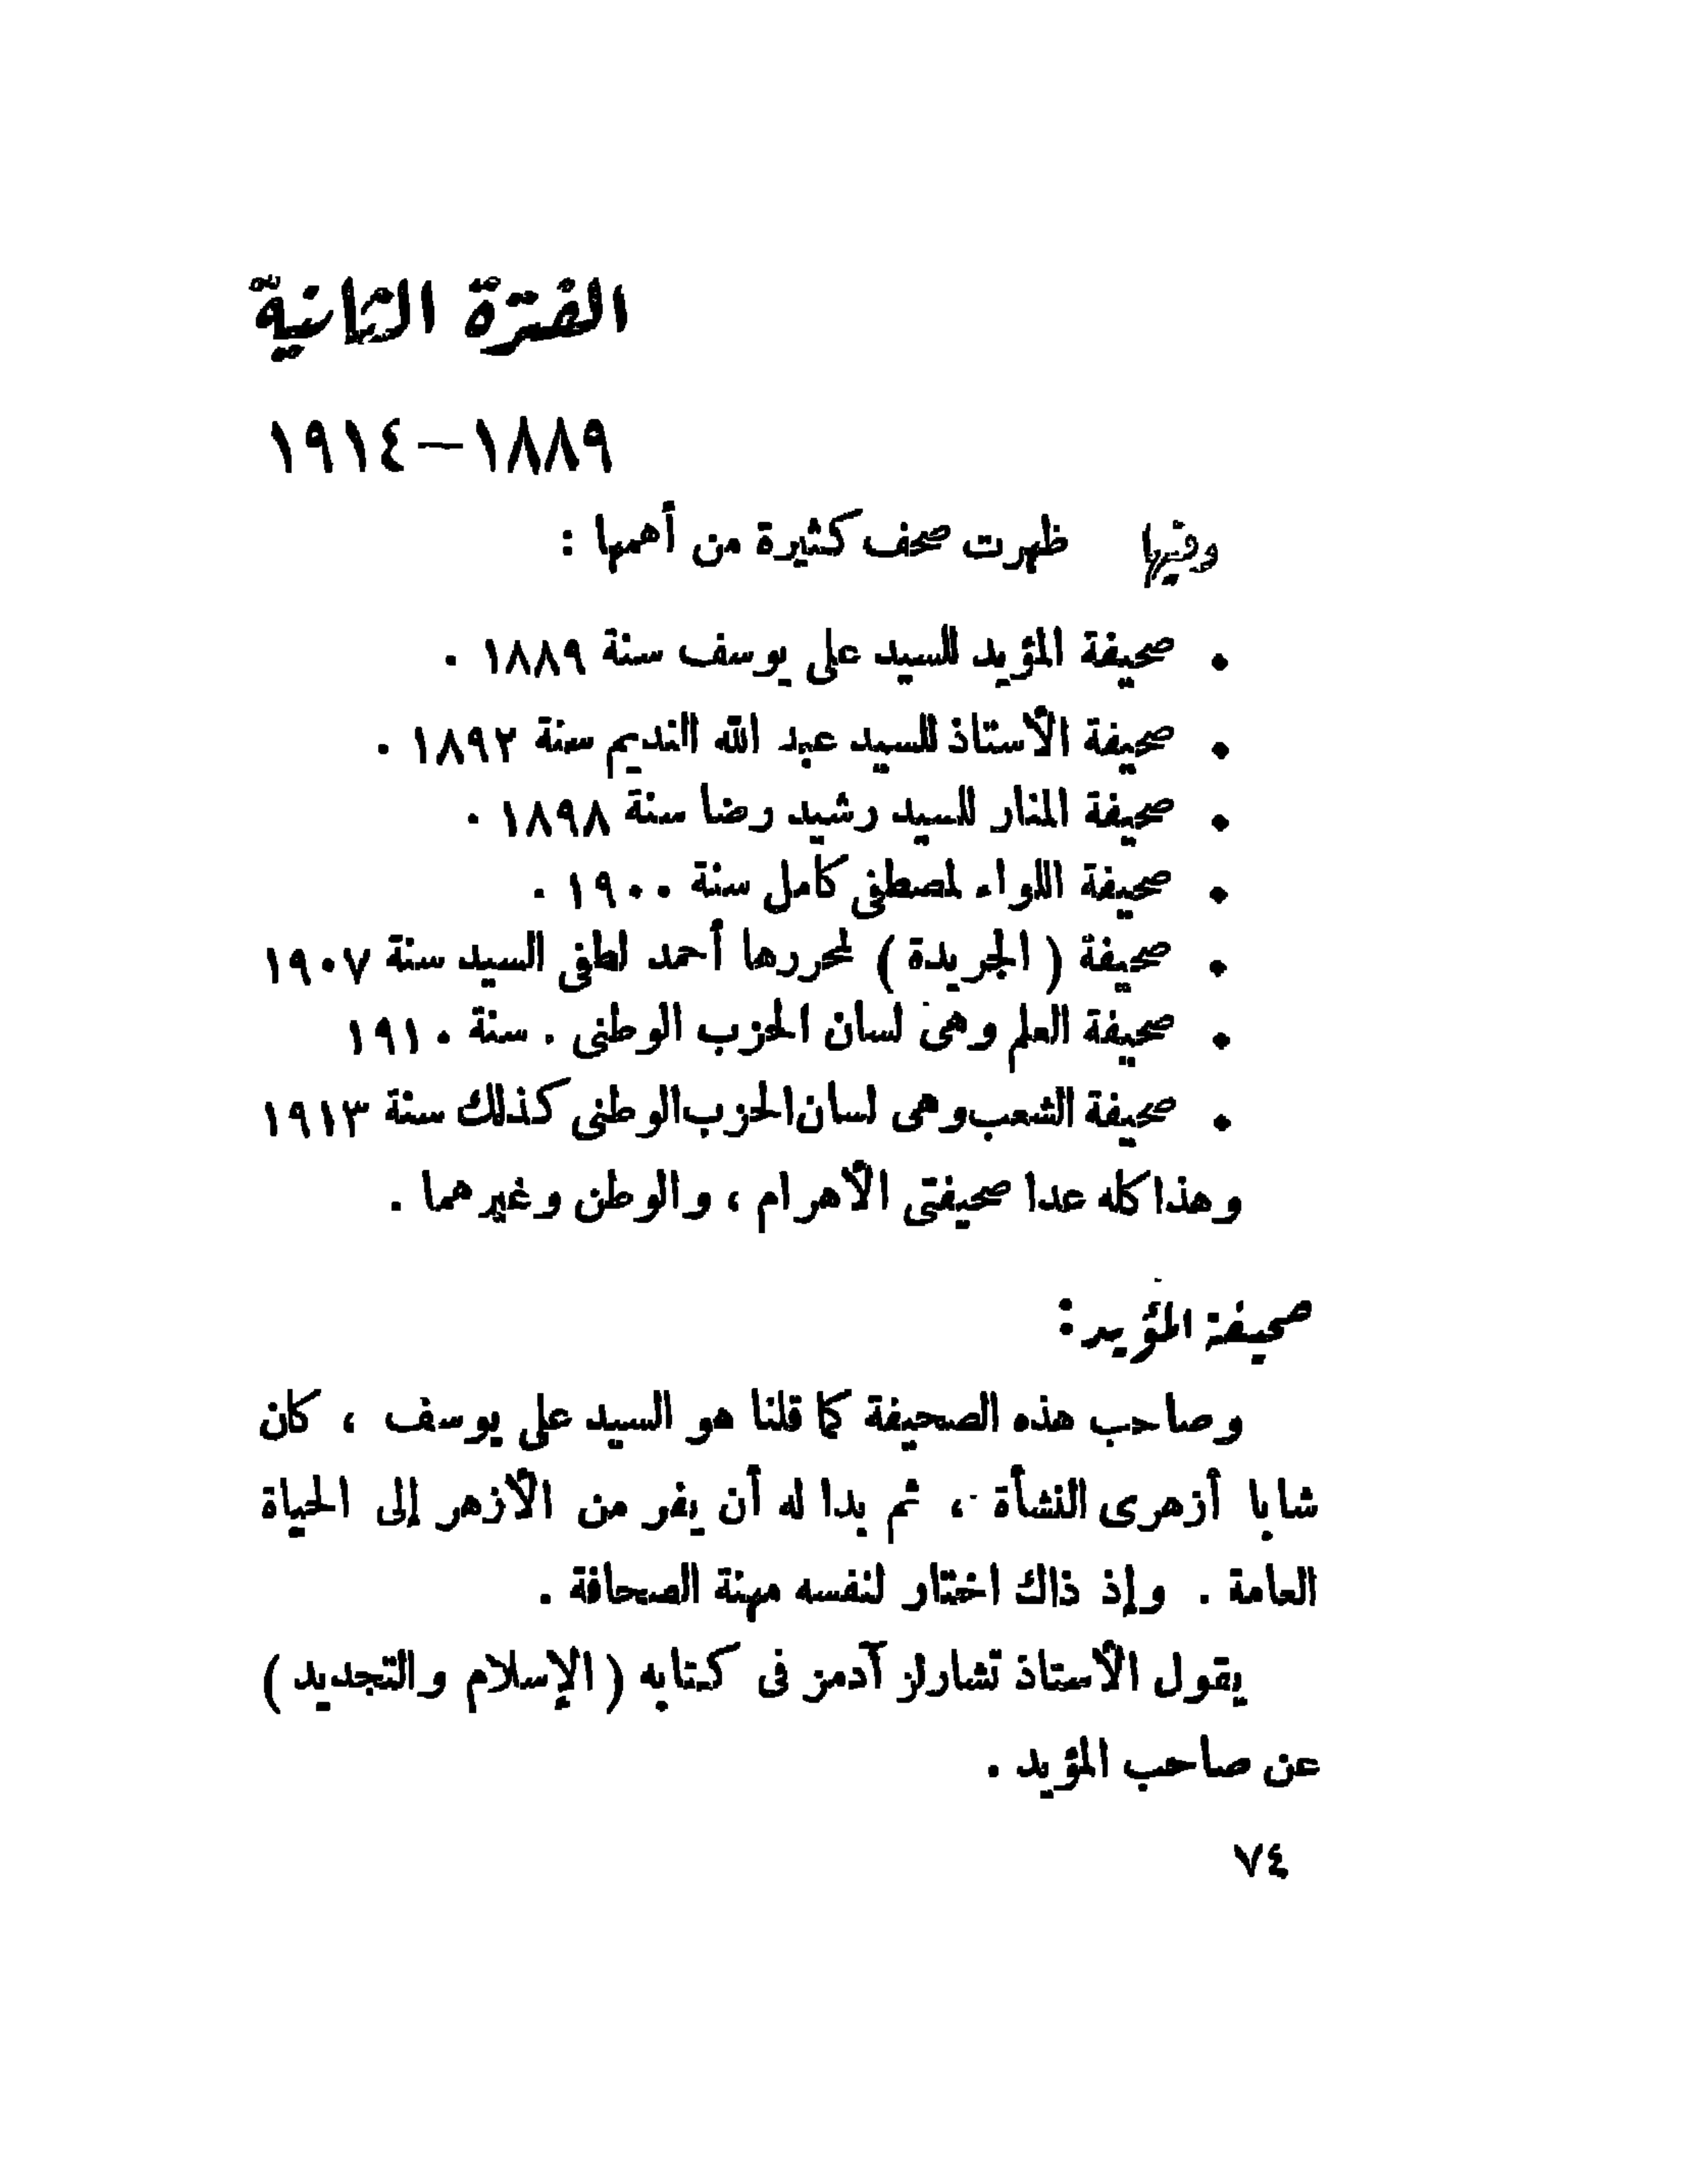 الفترة الثانية
١٨٨٩–١٩١٤
وفيها ظهرت صحف كثيرة من أهمها :
• صحيفة المؤيد للسيد على يوسف سنة ١٨٨٩ .
• صحيفة الأستاذ للسيد عبد الله النديم سنة ١٨٩٢ .
• صحيفة المنار للسيد رشيد رضا سنة ١٨٩٨ .
• صحيفة اللواء لمصطفى كامل سنة ١٩٠٠ .
• صحيفة ( الجريدة ) لمحررها أحمد لطفى السيد سنة ١٩٠٧
• صحيفة العلم وهى لسان الحزب الوطنى . سنة ١٩١٠
• صحيفة الشعب وهى لسان الحزب الوطنى كذلك سنة ١٩١٣
وهذا كله عدا صحيفتى الأهرام ، والوطن وغيرهما .
صحيفة المؤيد :
وصاحب هذه الصحيفة كما قلنا هو السيد على يوسف ، كان
شابا أزهرى النشأة ، ثم بدا له أن يفر من الأزهر إلى الحياة
العامة . وإذ ذاك اختار لنفسه مهنة الصحافة .
يقول الأستاذ تشارلز آدمز فى كتابه ( الإسلام والتجديد )
عن صاحب المؤيد .
٧٤